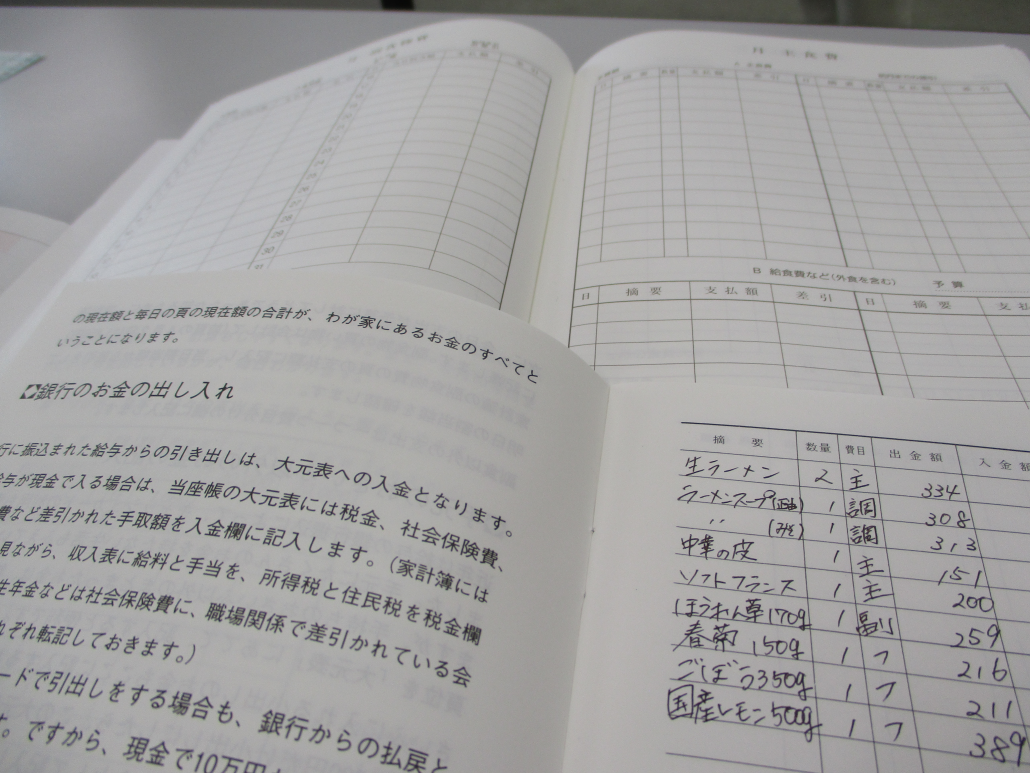 月 主食費
B 給食費など(外食を含む) 予算
日 摘要 支払額 差引 日 摘要
の現在額と毎日の頁の現在額の合計が、わが家にあるお金のすべてと
いうことになります。
銀行のお金の出し入れ
行に振込まれた給与からの引き出しは、大元表への入金となります。
給与が現金で入る場合は、当座帳の大元表には税金、社会保険費、
費など差引かれた手取額を入金欄に記入します。(家計簿には
見ながら、収入表に給料と手当を、所得税と住民税を税金欄
生年金などは社会保険費に、職場関係で差引かれている会
れぞれ転記しておきます。)
ードで引出しをする場合も、銀行からの払戻と
す。ですから、現金で10万円
摘要 数量 費目 出金額 入金額
生ラーメン 2 主 334
ラーメンスープ(正油) 1 調 308
〃 (みそ) 1 調 313
中華の皮 1 主 151
ソフトフランス 1 主 200
ほうれん草170g 1 副 259
春菊 150g 1 フ 216
ごぼう350g 1 フ 211
国産レモン500g 1 フ 389